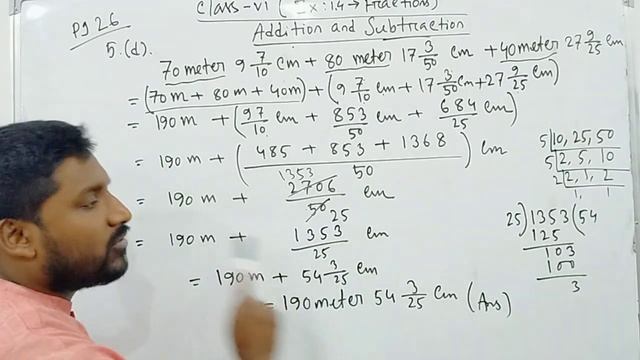 Class-VI (Ex:14→Fractions)
Pg 26
Addition and Subtraction
5.(d).
70 meter 9 7/10 cm + 80 meter 17 3/50 cm + 40 meter 27 9/25 cm
= (70m + 80m + 40m) + (9 7/10 cm + 17 3/50 cm + 27 9/25 cm)
= 190m + (97/10 cm + 853/50 cm + 684/25 cm)
= 190m + (485 + 853 + 1368 / 50) cm
= 190m + 2706/50 cm
1353
25
= 190m + 1353/25 cm
= 190m + 54 3/25 cm
= 190 meter 54 3/25 cm (Ans)
5 | 10, 25, 50
5 | 2, 5, 10
2 | 2, 1, 2
1, 1
25) 1353 (54
125
103
100
3